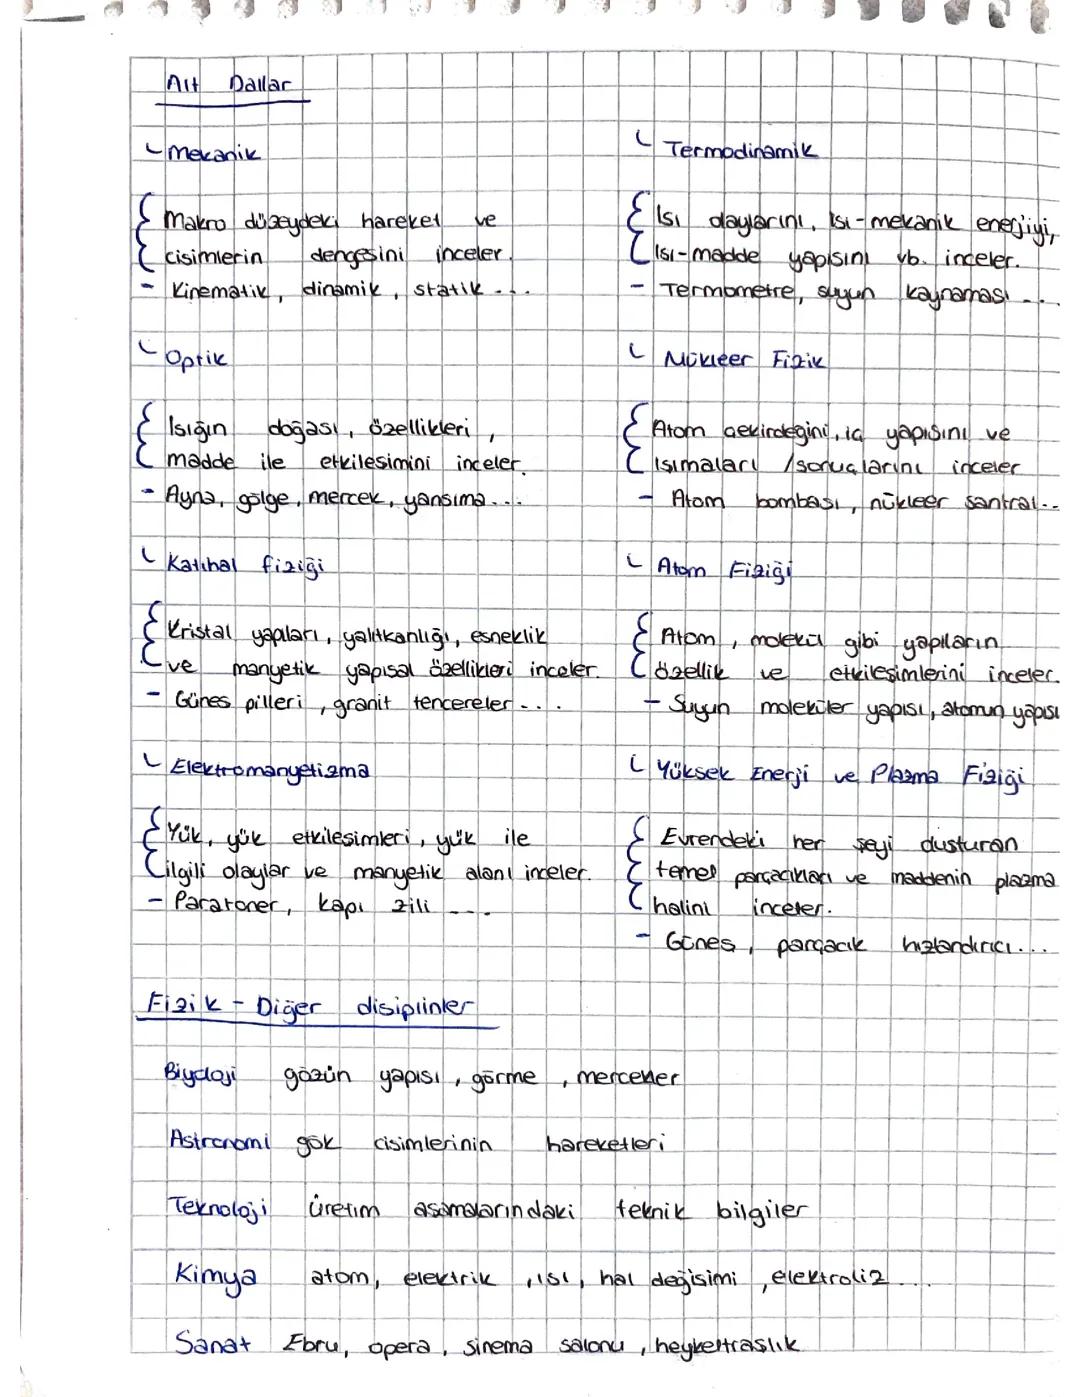 Alt Dallar
Mekanik
Makro düzeydeki hareket ve
cisimlerin dengesini inceler.
- Kinematik, dinamik, statik ...
Termodinamik
Isı olaylarını, ısı-mekanik enerjiyi,
Isı-madde yapısını vb. inceler.
- Termometre, suyun kaynaması ...
Optik
Işığın doğası, özellikleri,
madde ile etkileşimini inceler.
- Ayna, gölge, mercek, yansıma...
Nükleer Fizik
Atom çekirdeğini, iç yapısını ve
ışımaları /sonuçlarını inceler
- Atom bombası, nükleer santral..
Katıhal fiziği
Kristal yapıları, yalıtkanlığı, esneklik
ve manyetik yapısal özellikleri inceler.
- Güneş pilleri, granit tencereler ...
Atom Fiziği
Atom, molekül gibi yapıların
özellik ve etkileşimlerini inceler.
- Suyun moleküler yapısı, atomun yapısı
Elektromanyetizma
Yük, yük etkileşimleri, yük ile
ilgili olaylar ve manyetik alanı inceler.
- Paratoner, kapı zili ...
Yüksek Enerji ve Plazma Fiziği
Evrendeki her şeyi duşturan
temel parçacıkları ve maddenin plazma
halini inceler.
- Güneş, parçacık hızlandırıcı...
Fizik - Diğer disiplinler
Biyoloji gözün yapısı, görme, mercekler
Astronomi gök cisimlerinin hareketleri
Teknoloji üretim aşamalarındaki teknik bilgiler
Kimya atom, elektrik, ısı, hal değişimi, elektroliz ...
Sanat Ebru, opera, sinema salonu, heykeltraşlık